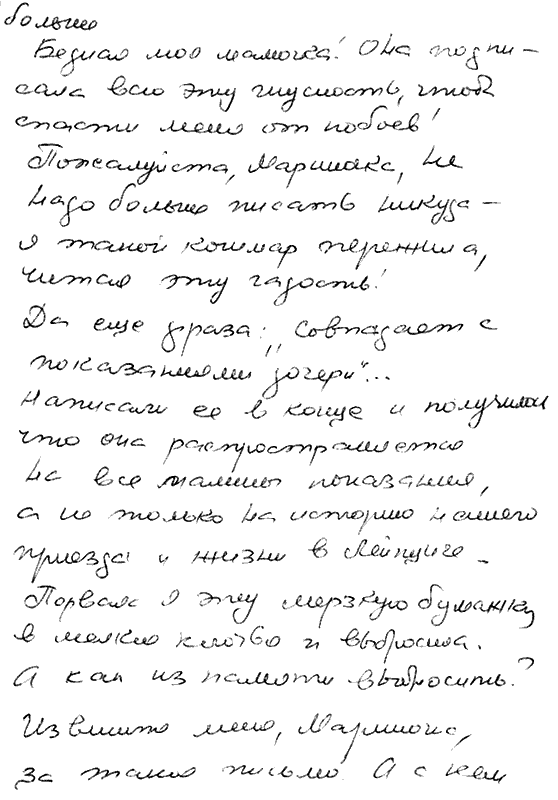 больше
Бедная моя мамочка! Она подпи-
сала всю эту гнусность, чтоб
спасти меня от побоев!
Пожалуйста, Мариночка, не
надо больше писать никуда -
я такой кошмар пережила,
читая эту гадость!
Да еще фраза: „совпадает с
показаниями дочери"...
Написали ее в конце и получилось
что она распространяется
на все мамины показания,
а не только на историю нашего
приезда и жизни в Лейпциге -
Порвала я эту мерзкую бумажку
в мелкие клочья и выбросила.
А как из памяти выбросить?
Извините меня, Мариночка,
за такое письмо. А с кем